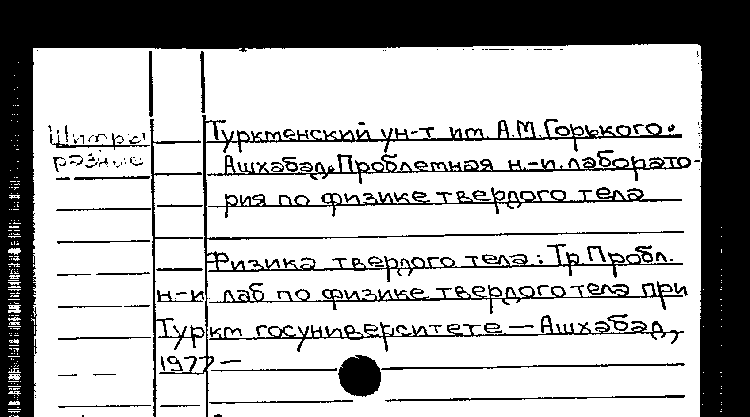 Шифры
разные
Туркменский ун-т им. А.М.Горького.
Ашхабад. Проблемная н.-и. лаборато-
рия по физике твердого тела
Физика твердого тела: Тр Пробл.
н-и лаб по физике твердого тела при
Туркм госуниверситете — Ашхабад,
1977 —